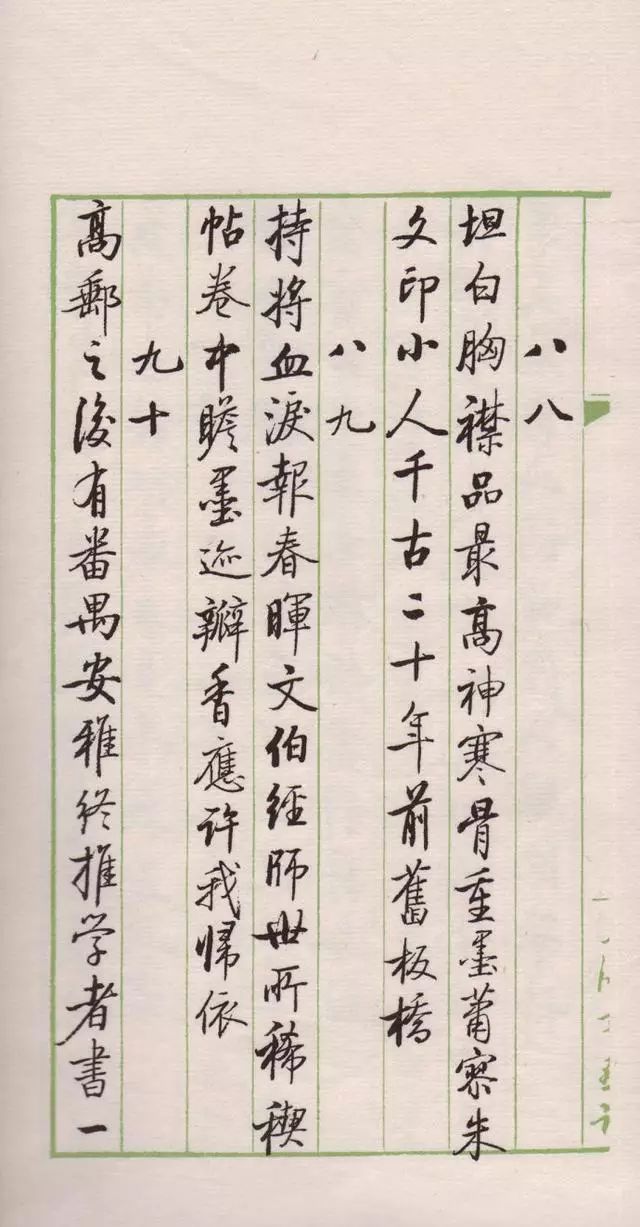 八八
坦白胸襟品最高神寒骨重墨萧寥朱
文印小人千古二十年前舊板橋
八九
持將血淚報春暉文伯經師世所稀禊
帖卷中瞻墨迹瓣香應许我归依
九十
高郵之後有番禺安雅终推学者書一